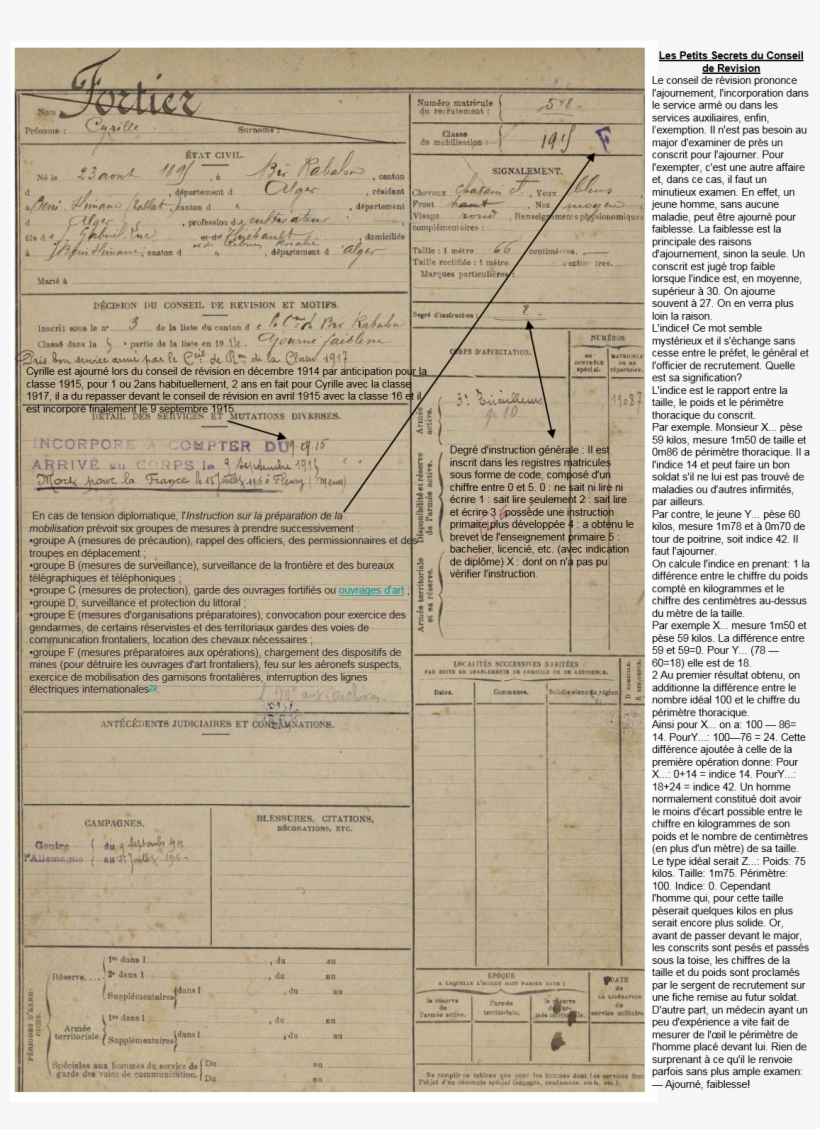 Fortier
Nom
Prénoms : Cyrille Surnoms :
ÉTAT CIVIL.
Né le 23 aout 1895, à Bir Rabalou, canton
d , département d Alger, résidant
à Beni Slimane, canton d , département
d Alger, profession de cultivateur
fils de Gabriel Luc et de Thiébault domiciliés
à Beni Slimane, canton d , département d'Alger
Marié à
DÉCISION DU CONSEIL DE REVISION ET MOTIFS.
Inscrit sous le n° 3 de la liste du canton de Bir Rabalou
Classé dans la 5 partie de la liste en 1914 Ajourné faiblesse
Pris bon service armé par le Cel de Ron de la Classe 1917
Cyrille est ajourné lors du conseil de révision en décembre 1914 par anticipation pour la
classe 1915, pour 1 ou 2ans habituellement, 2 ans en fait pour Cyrille avec la classe
1917, il a du repasser devant le conseil de révision en avril 1915 avec la classe 16 et il
est incorporé finalement le 9 septembre 1915.
DÉTAIL DES SERVICES ET MUTATIONS DIVERSES.
INCORPORÉ A COMPTER DU 9.09.15
ARRIVÉ au CORPS le 9 Septembre 1915
Mort pour la France le 15 juillet 1916 à Fleury (Meuse)
En cas de tension diplomatique, l'Instruction sur la préparation de la
mobilisation prévoit six groupes de mesures à prendre successivement :
•groupe A (mesures de précaution), rappel des officiers, des permissionnaires et des
troupes en déplacement ;
•groupe B (mesures de surveillance), surveillance de la frontière et des bureaux
télégraphiques et téléphoniques ;
•groupe C (mesures de protection), garde des ouvrages fortifiés ou ouvrages d'art ;
•groupe D, surveillance et protection du littoral ;
•groupe E (mesures d'organisations préparatoires), convocation pour exercice des
gendarmes, de certains réservistes et des territoriaux gardes des voies de
communication frontaliers, location des chevaux nécessaires ;
•groupe F (mesures préparatoires aux opérations), chargement des dispositifs de
mines (pour détruire les ouvrages d'art frontaliers), feu sur les aéronefs suspects,
exercice de mobilisation des garnisons frontalières, interruption des lignes
électriques internationales
ANTÉCÉDENTS JUDICIAIRES ET CONDAMNATIONS.
CAMPAGNES.
Contre l'Allemagne
du 9 Septembre 1915
au 15 Juillet 1916
BLESSURES, CITATIONS,
DÉCORATIONS, ETC.
PÉRIODES D'EXERCICES.
Réserve....
1re dans l , du au
2e dans l , du au
Supplémentaires dans l , du au
Armée territoriale.
1re dans l , du au
Supplémentaires dans l , du au
Spéciales aux hommes du service de
garde des voies de communication.
Du au
Du au
Numéro matricule
du recrutement : 578
Classe
de mobilisation : 1915 F
SIGNALEMENT.
Cheveux chatain f. Yeux bleus
Front haut, Nez moyen
Visage rond, Renseignements physionomiques
complémentaires :
Taille : 1 mètre 66 centimètres.
Taille rectifiée : 1 mètre centimètres.
Marques particulières :
Degré d'instruction : 2
CORPS D'AFFECTATION.
NUMÉROS
AU CONTRÔLE spécial.
MATRICULE OU AU répertoire.
Armée active.
3e Tirailleurs
19087
Disponibilité et réserve
de l'armée active.
Armée territoriale
et sa réserve.
Degré d'instruction générale : Il est
inscrit dans les registres matricules
sous forme de code, composé d'un
chiffre entre 0 et 5. 0 : ne sait ni lire ni
écrire 1 : sait lire seulement 2 : sait lire
et écrire 3 : possède une instruction
primaire plus développée 4 : a obtenu le
brevet de l'enseignement primaire 5 :
bachelier, licencié, etc. (avec indication
de diplôme) X : dont on n'a pas pu
vérifier l'instruction.
LOCALITÉS SUCCESSIVES HABITÉES
PAR SUITE DE CHANGEMENTS DE DOMICILE OU DE RÉSIDENCE.
Dates. Communes. Subdivisions de région
ÉPOQUE
A LAQUELLE L'HOMME DOIT PASSER DANS :
la réserve de l'armée active.
l'armée territoriale.
la réserve de l'armée territoriale.
DATE
de
LA LIBÉRATION
du
service militaire
Ne remplir ce tableau que pour les hommes dont les services font
l'objet d'un décompte spécial (engagés, condamnés, omis, etc.).
Les Petits Secrets du Conseil
de Revision
Le conseil de révision prononce
l'ajournement, l'incorporation dans
le service armé ou dans les
services auxiliaires, enfin,
l'exemption. Il n'est pas besoin au
major d'examiner de près un
conscrit pour l'ajourner. Pour
l'exempter, c'est une autre affaire
et, dans ce cas, il faut un
minutieux examen. En effet, un
jeune homme, sans aucune
maladie, peut être ajourné pour
faiblesse. La faiblesse est la
principale des raisons
d'ajournement, sinon la seule. Un
conscrit est jugé trop faible
lorsque l'indice est, en moyenne,
supérieur à 30. On ajourne
souvent à 27. On en verra plus
loin la raison.
L'indice! Ce mot semble
mystérieux et il s'échange sans
cesse entre le préfet, le général et
l'officier de recrutement. Quelle
est sa signification?
L'indice est le rapport entre la
taille, le poids et le périmètre
thoracique du conscrit.
Par exemple. Monsieur X... pèse
59 kilos, mesure 1m50 de taille et
0m86 de périmètre thoracique. Il a
l'indice 14 et peut faire un bon
soldat s'il ne lui est pas trouvé de
maladies ou d'autres infirmités,
par ailleurs.
Par contre, le jeune Y... pèse 60
kilos, mesure 1m78 et à 0m70 de
tour de poitrine, soit indice 42. Il
faut l'ajourner.
On calcule l'indice en prenant: 1 la
différence entre le chiffre du poids
compté en kilogrammes et le
chiffre des centimètres au-dessus
du mètre de la taille.
Par exemple X... mesure 1m50 et
pèse 59 kilos. La différence entre
59 et 59=0. Pour Y... (78 —
60=18) elle est de 18.
2 Au premier résultat obtenu, on
additionne la différence entre le
nombre idéal 100 et le chiffre du
périmètre thoracique.
Ainsi pour X... on a: 100 — 86=
14. PourY...: 100—76 = 24. Cette
différence ajoutée à celle de la
première opération donne: Pour
X...: 0+14 = indice 14. PourY...:
18+24 = indice 42. Un homme
normalement constitué doit avoir
le moins d'écart possible entre le
chiffre en kilogrammes de son
poids et le nombre de centimètres
(en plus d'un mètre) de sa taille.
Le type idéal serait Z...: Poids: 75
kilos. Taille: 1m75. Périmètre:
100. Indice: 0. Cependant
l'homme qui, pour cette taille
pèserait quelques kilos en plus
serait encore plus solide. Or,
avant de passer devant le major,
les conscrits sont pesés et passés
sous la toise, les chiffres de la
taille et du poids sont proclamés
par le sergent de recrutement sur
une fiche remise au futur soldat.
D'autre part, un médecin ayant un
peu d'expérience a vite fait de
mesurer de l'œil le périmètre de
l'homme placé devant lui. Rien de
surprenant à ce qu'il le renvoie
parfois sans plus ample examen:
— Ajourné, faiblesse!